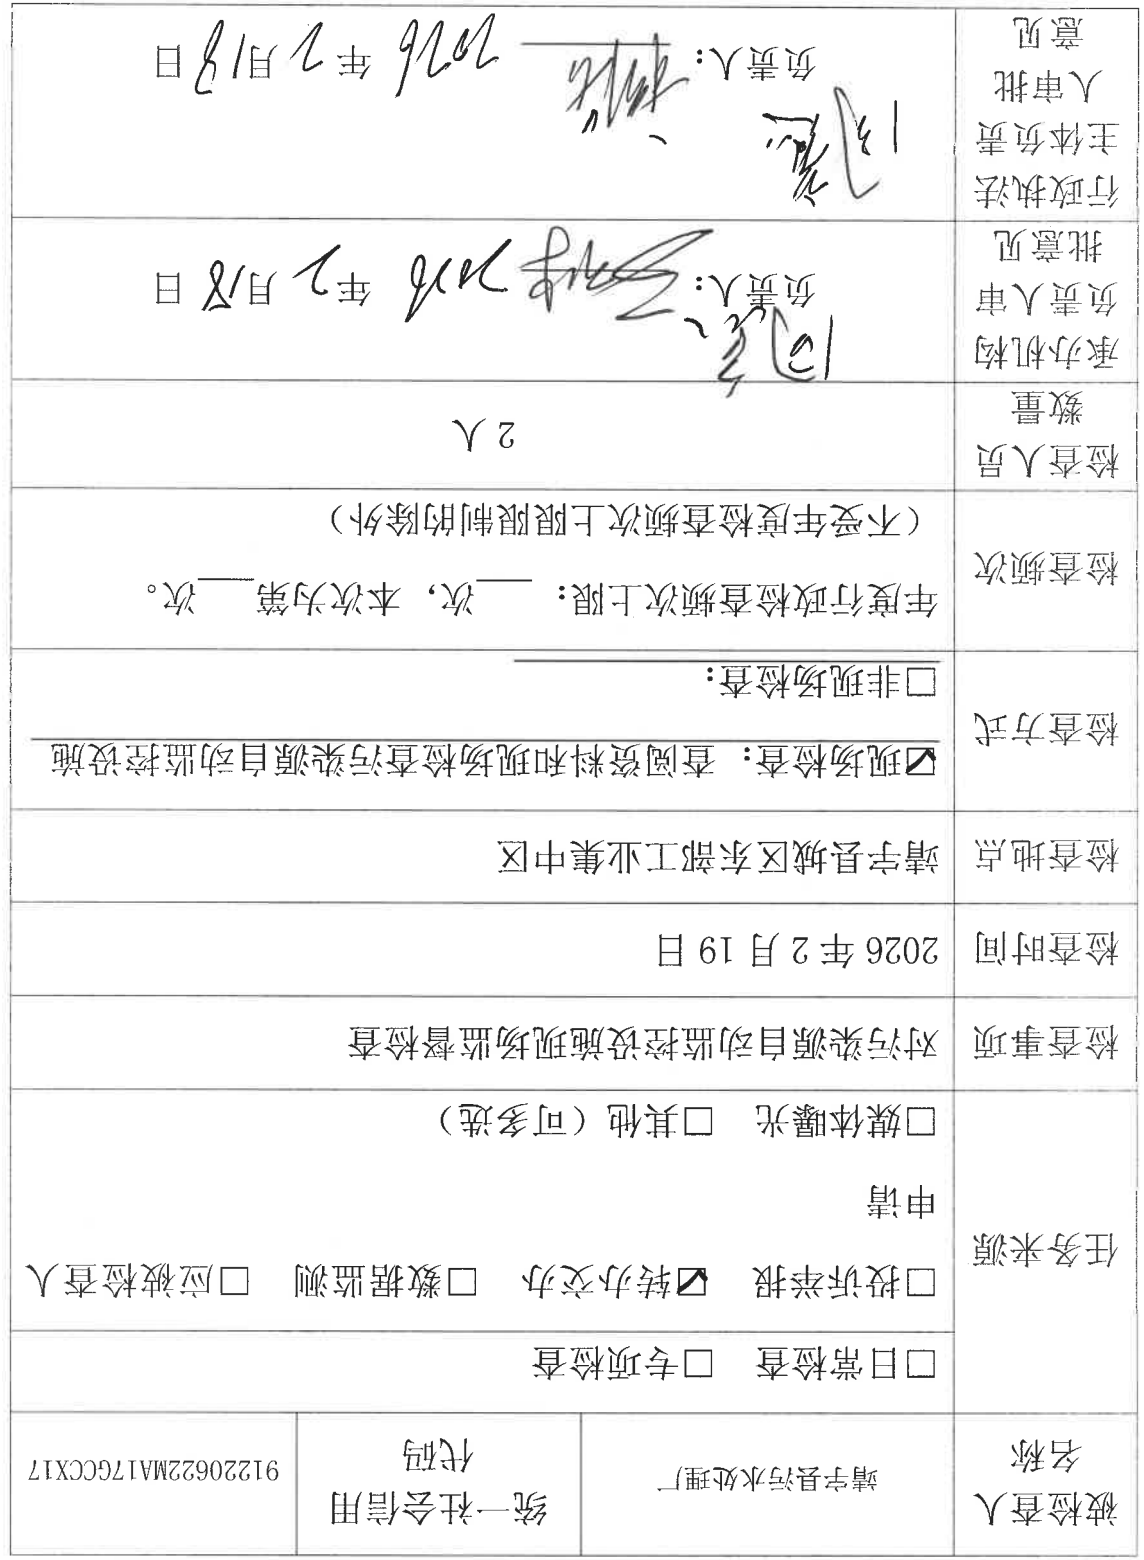 被检查人
名称
靖宇县污水处理厂
统一社会信用
代码
91220622MA17GCCX17
任务来源
□日常检查 □专项检查
□投诉举报 ☑转办交办 □数据监测 □应被检查人
申请
□媒体曝光 □其他（可多选）
检查事项
对污染源自动监控设施现场监督检查
检查时间
2026 年 2 月 19 日
检查地点
靖宇县城区东部工业集中区
检查方式
☑现场检查：查阅资料和现场检查污染源自动监控设施
□非现场检查：
检查频次
年度行政检查频次上限：___次，本次为第___次。
（不受年度检查频次上限限制的除外）
检查人员
数量
2 人
承办机构
负责人审
批意见
同意
负责人： 2026 年 2 月 18 日
行政执法
主体负责
人审批
意见
同意
负责人： 2026 年 2 月 18 日